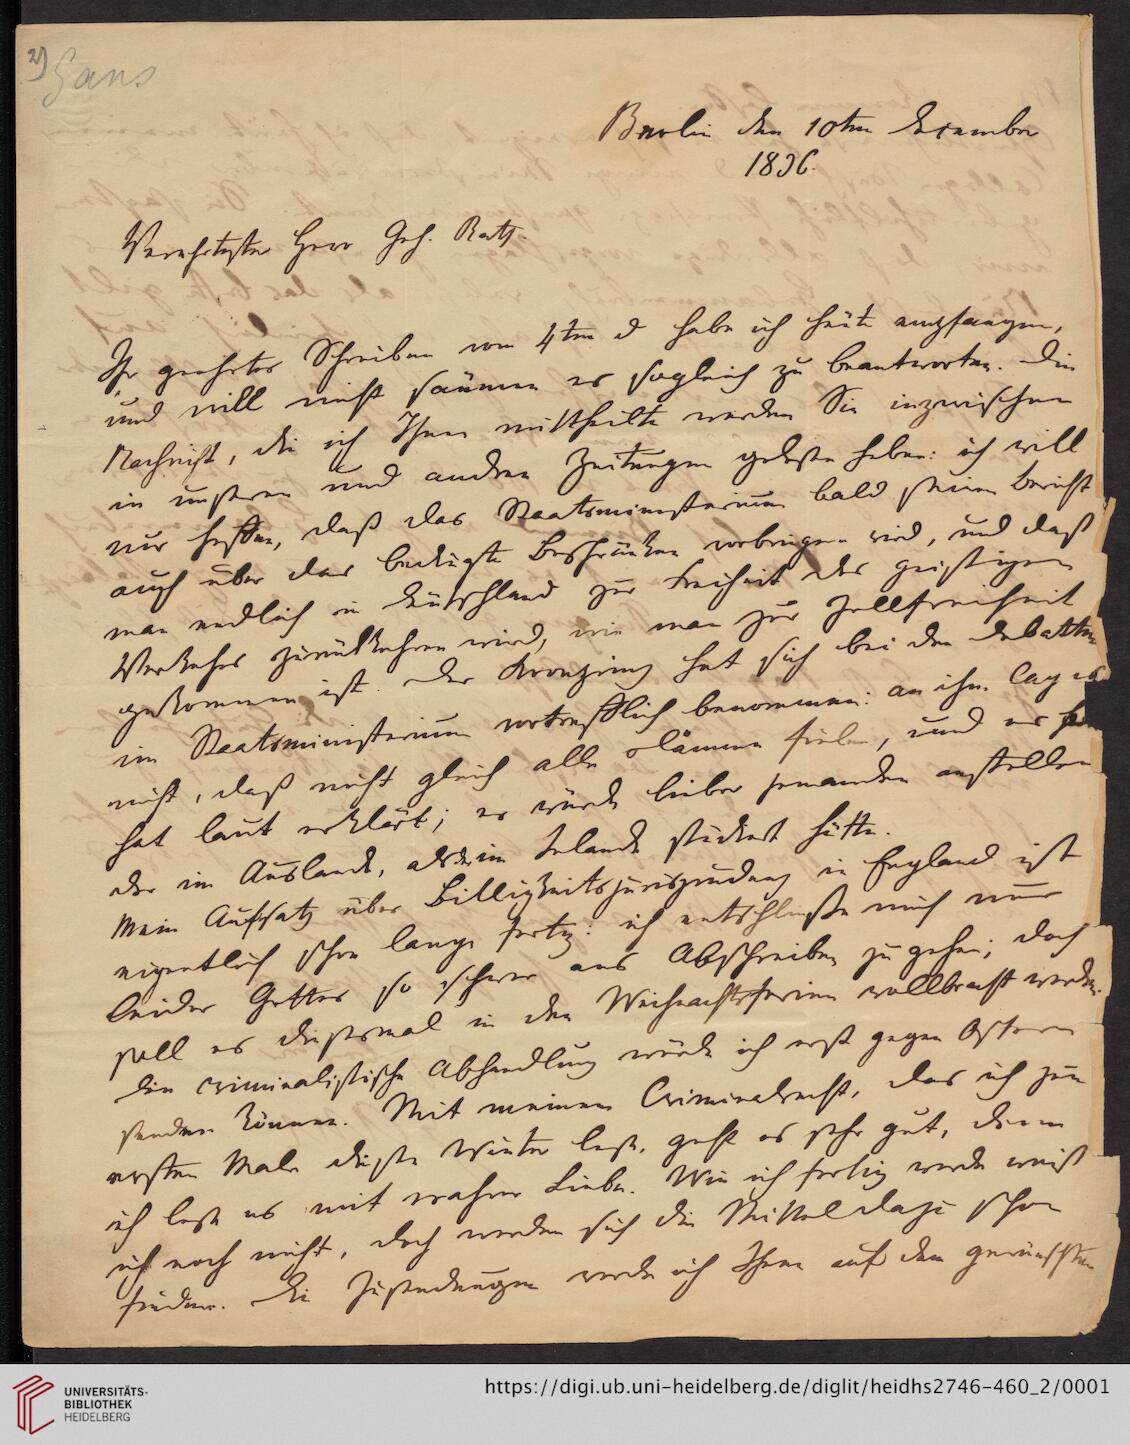 2) Gans
Berlin den 10ten December
1836.
Verehrtester Herr Geh. Rath.
Ihr geehrtes Schreiben vom 4ten d habe ich heute empfangen,
und will nicht säumen es sogleich zu beantworten. Die
Nachricht, die ich Ihnen mittheilte werden Sie inzwischen
in unseren und andren Zeitungen gelesen haben: ich will
nur hoffen, daß das Staatsministerium bald seinen Bericht
auch über das Beschränken vorbringen wird, und daß
man endlich in Deutschland zur Freiheit des geistigen
Verkehrs zurückkehren wird, wie man zur Zollfreiheit
gekommen ist. Der Kronprinz hat sich bei den Debatten
im Staatsministerium vortrefflich benommen: an ihm lag es
nicht, daß nicht gleich alle fielen, und er
hat laut erklärt; er würde lieber jemanden anstellen
der im Auslande, als der im Inlande studiert hätte.
Mein Aufsatz über Billigkeitsjurisprudenz in England ist
eigentlich schon lange fertig: ich entschließe mich nur
leider Gottes so schwer ans Abschreiben zu gehen; doch
soll es diesesmal in den Weihnachtsferien vollbracht werden.
Die criminalistische Abhandlung würde ich erst gegen Ostern
senden können. Mit meinem Criminalrecht, das ich zum
ersten Male diesen Winter lese, geht es sehr gut, denn
ich lese es mit wahrer Liebe. Wie ich fertig werde weiß
ich noch nicht, doch werden sich die Mittel dazu schon
finden. Die Zusendungen werde ich Ihnen auf dem gewünschten
UNIVERSITÄTS-
BIBLIOTHEK
HEIDELBERG
https://digi.ub.uni-heidelberg.de/diglit/heidhs2746-460_2/0001